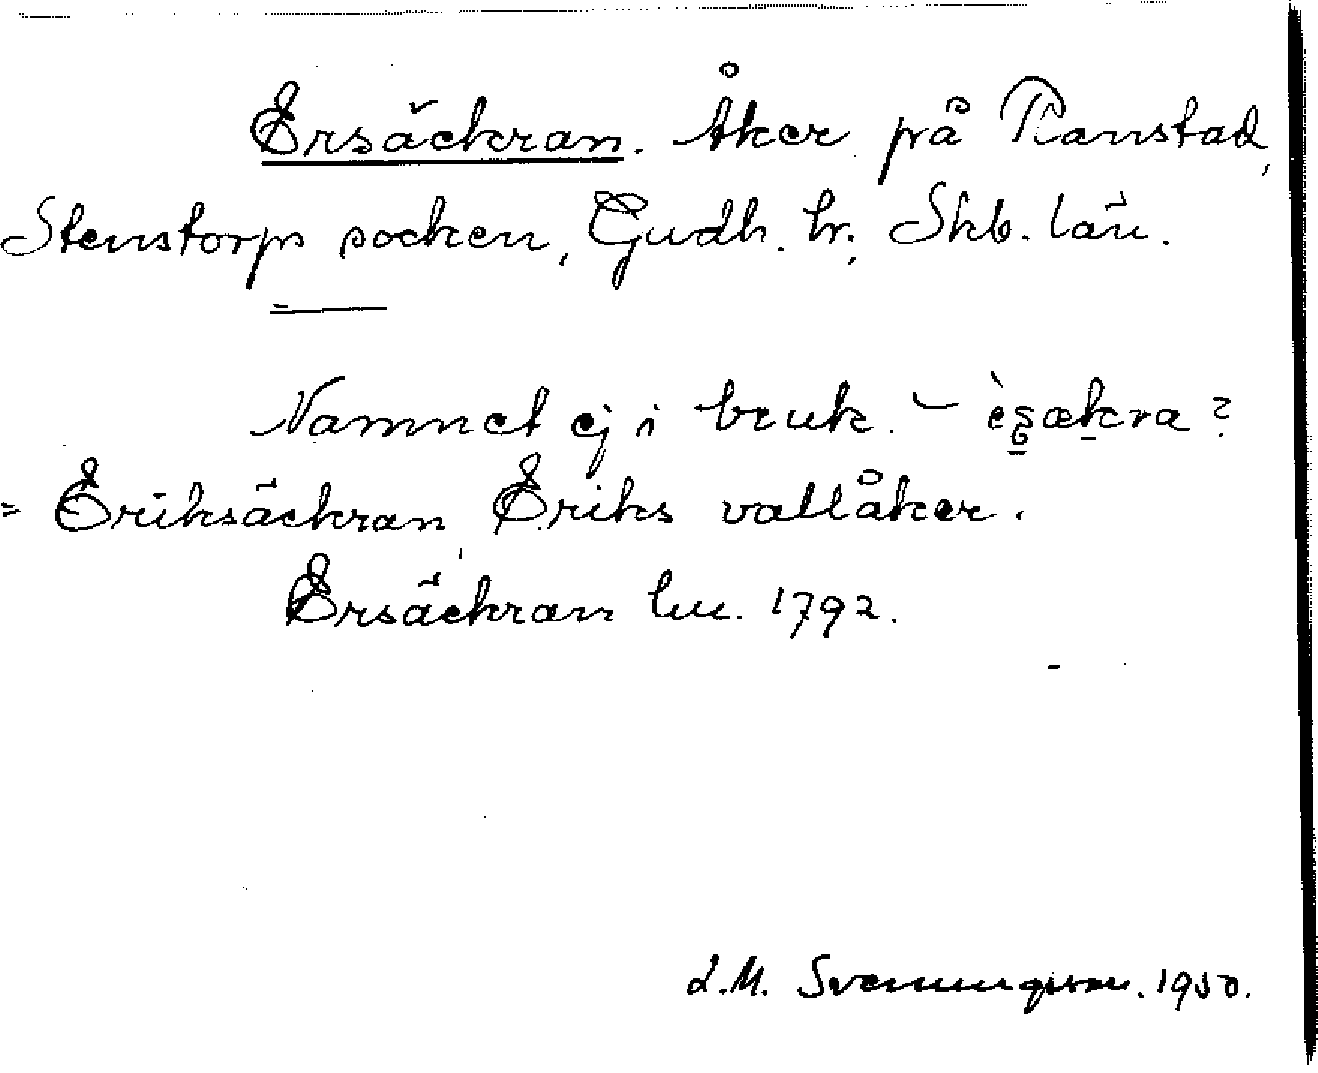 Ersäckran. Åker på Ranstad,
Stenstorps socken, Gudh. hr, Skb. län.
Namnet ej i bruk. – èsækra?
= Eriksäckran Eriks vallåker.
Ersäckran lm. 1792.
L.M. Svenungsson. 1950.